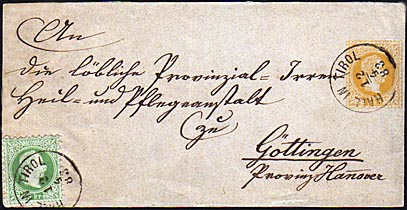 An
die löbliche Provinzial-Irren
Heil- und Pflegeanstalt
zu
Göttingen
Provinz Hanover
HALL IN TIROL
IN TIROL